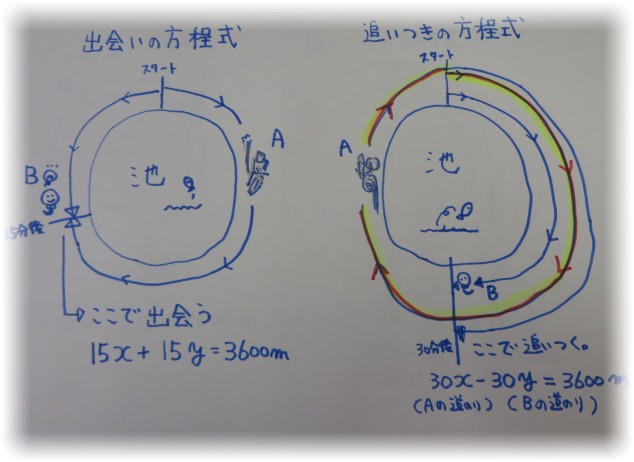 出会いの方程式
スタート
A
B
池
15分後
ここで出会う
15x + 15y = 3600m
追いつきの方程式
スタート
A
池
B
30分後 ここで追いつく。
30x - 30y = 3600m
(Aの道のり) (Bの道のり)